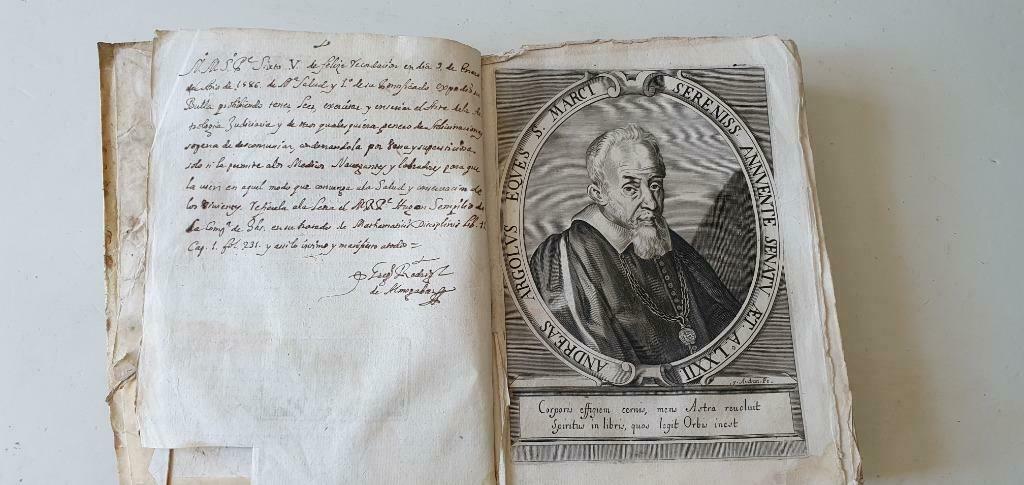 N. M. S.to P.e Sixto V. de felize recordacion en dia 9. de Enero
del Año de 1586. de N.a Salud y 1.o de su Pontificado expidio su
Bulla prohibiendo tener, leer, exercitar, y enseñar el Arte de la As-
trologia Judiciaria y de otro qualesquiera genero de Adivinaciones
so pena de descomunion, condenandola por vana y supersticiosa
solo si la permite a los Medicos Navegantes y labradores para que
la usen en aquel modo que convenga a la Salud y conservacion de
los vivientes. Refierela a la Letra el M. R. P.e Hugon Sempilio de
la Comp.a de Jhs. en su tratado de Mathematicis Disciplinis Lib. 11.
Cap. 1. fol. 231. y assi lo
Rodrig.z
de Almogabar
ANDREAS ARGOLVS EQVES S. MARCI SERENISS. ANNVENTE SENATV ET. A.o LXXII
Corporis effigiem cernis, mens Astra reuoluit
Spiritus in libris, quos legit Orbis inest